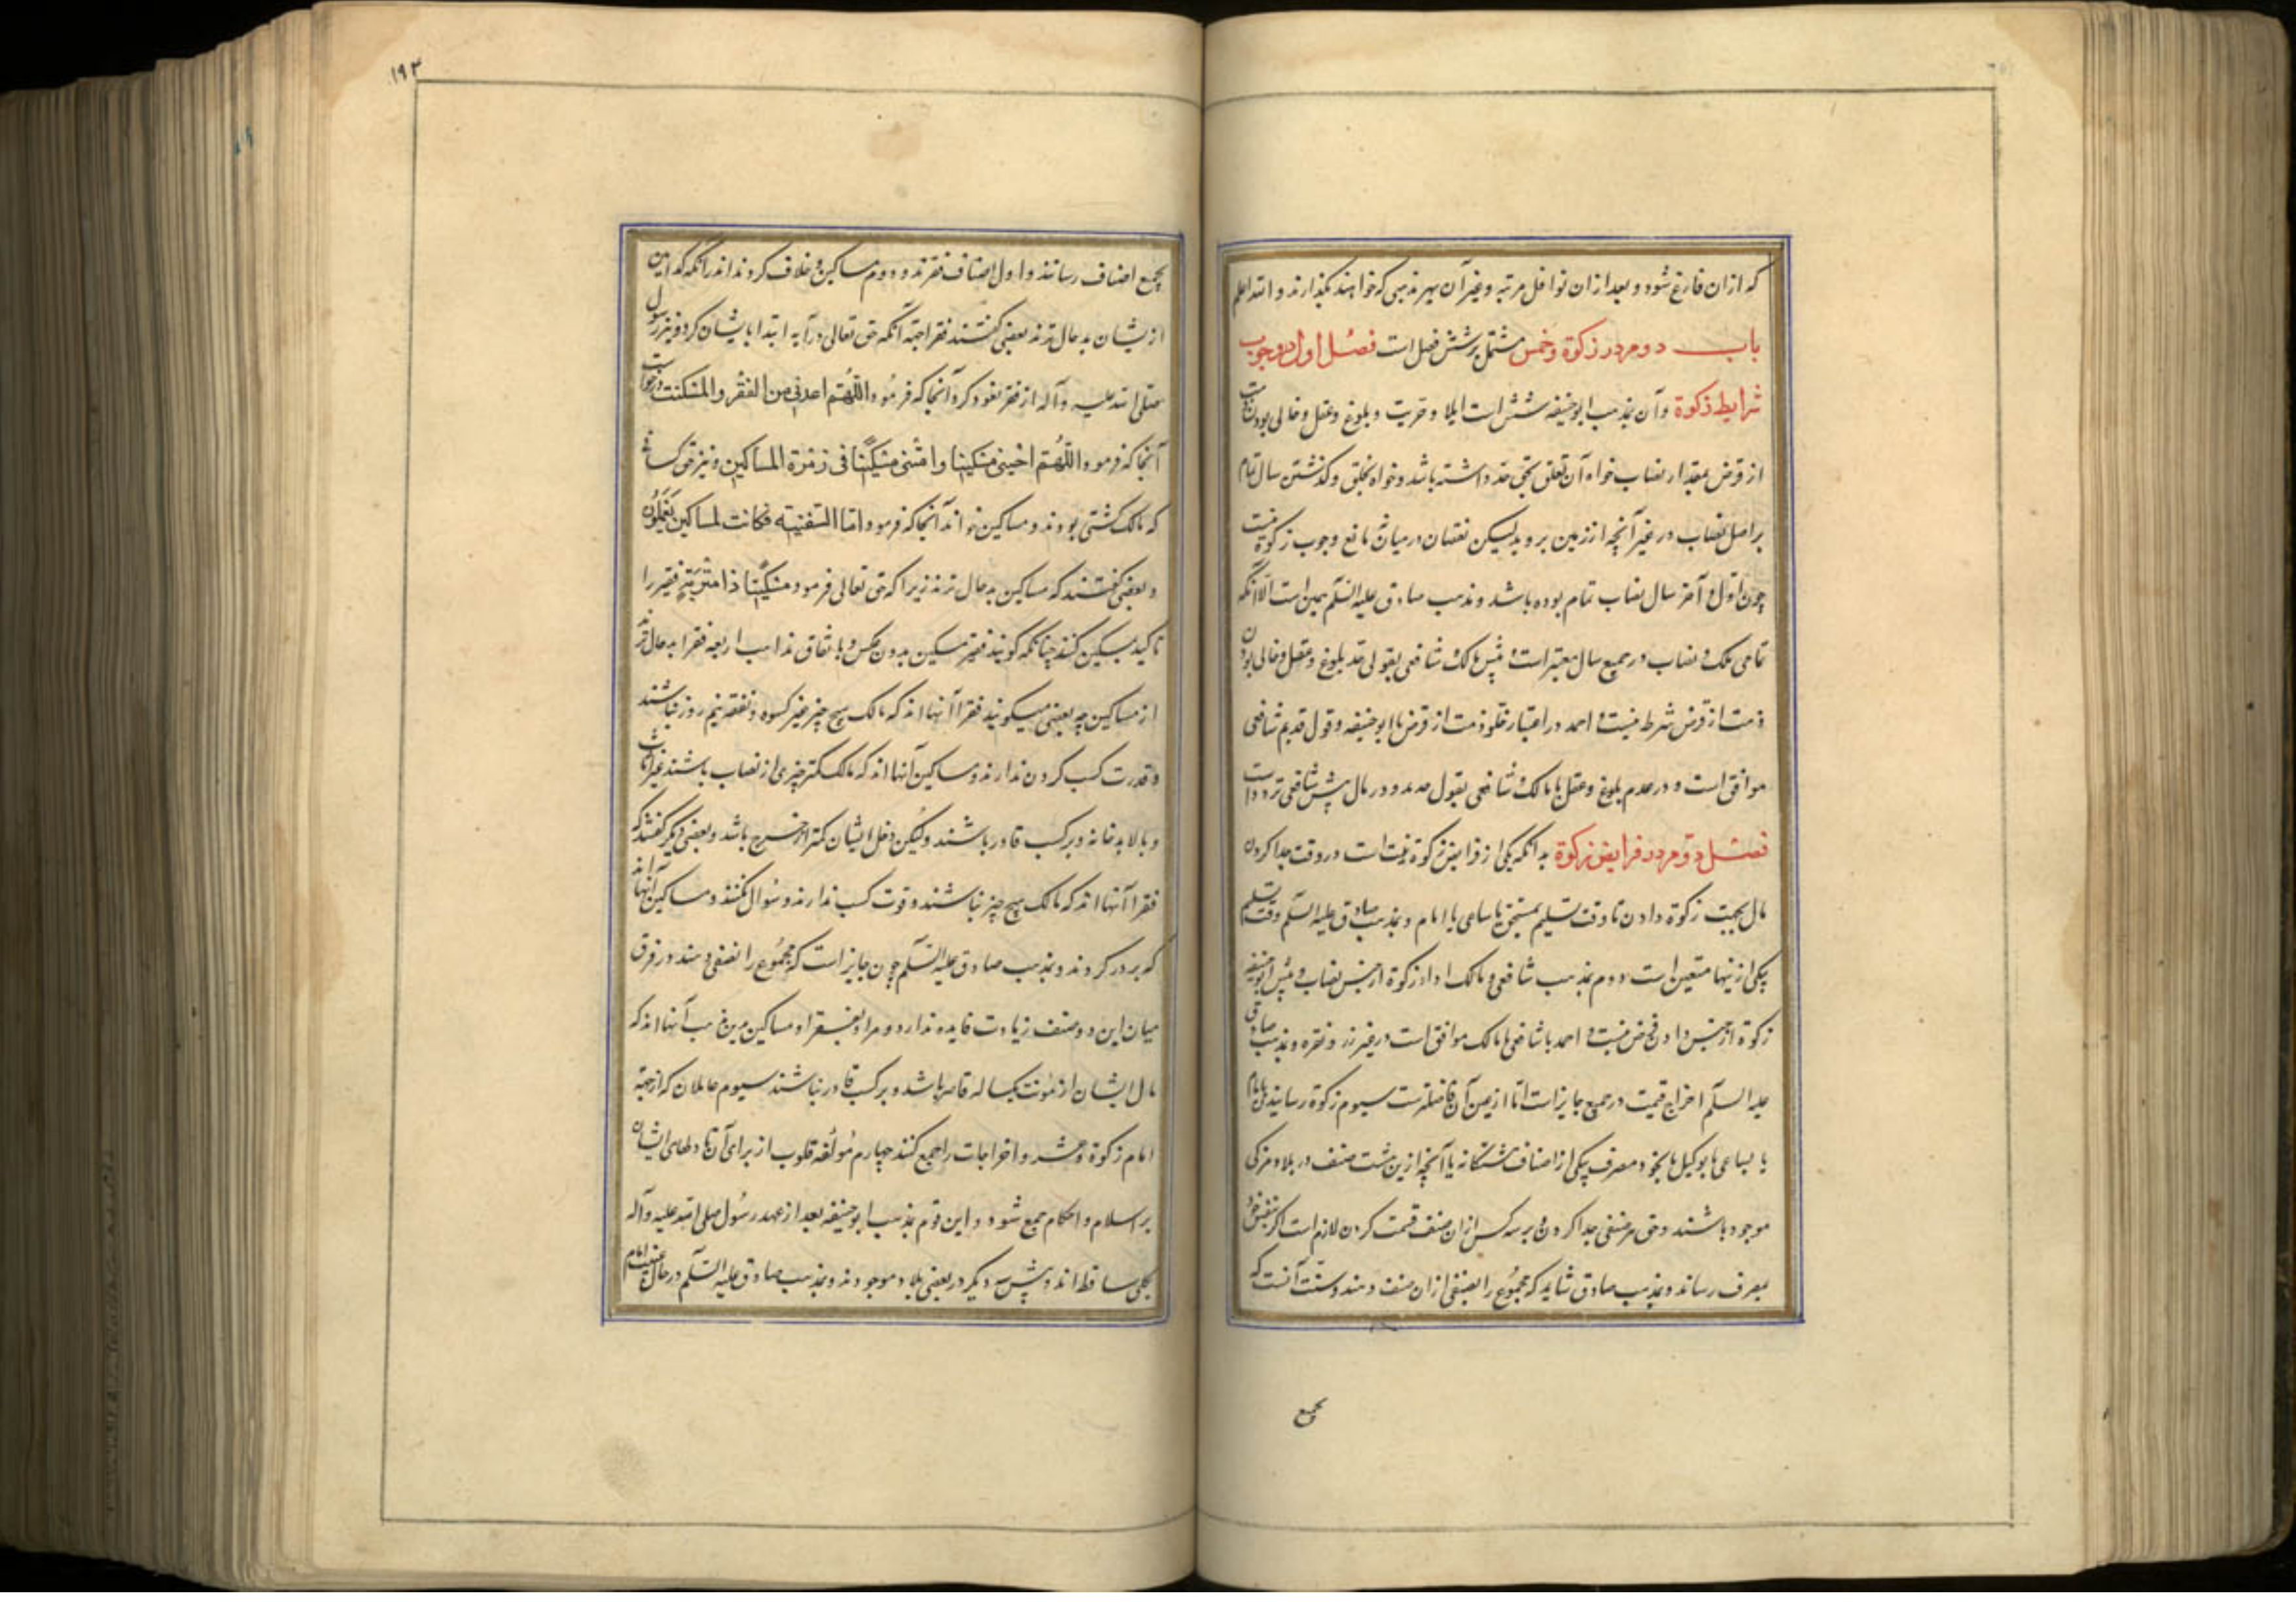 که ازان فارغ شود و بعد ازان نوافل مرتبه و غیر آن بهر مذهبی که خواهند بگذارند و الله اعلم
باب دوم در زکوة و خمس مشتمل بر شش فصل است فصل اول در وجوب
شرایط زکوة و آن بمذهب ابو حنیفه شش است اسلام و حریت و بلوغ و عقل و خالی بودن ذمت
از قرض بمقدار نصاب خواه آن تعلق بحق حقه داشته باشد و خواه بخلق و گذشتن سال تمام
بر اصل نصاب در غیر آنچه از زمین بروید لیکن نقصان در میان مانع وجوب زکوة نیست
چون اول و آخر سال نصاب تمام بوده باشد و مذهب صادق علیه السلم همین است الا آنکه
تمامی ملک و نصاب در جمیع سال معتبر است و پیش مالک و شافعی بقولی قد بلوغ و عقل و خالی بودن
ذمت از قرض شرط نیست و احمد در اعتبار خلو ذمت از قرض با ابو حنیفه و قول قدیم شافعی
موافق است و در عدم بلوغ و عقل با مالک و شافعی بقول و در مال پیش شافعی تردد است
فصل دوم در فرایض زکوة بدانکه یکی از فرایض زکوة نیت است در وقت جدا کردن
مال بجهت زکوة دادن تا وقت تسلیم بمستحق یا ساعی یا امام و بمذهب صادق علیه السلم وقت تسلیم
بیکی ازینها متعین است دوم بمذهب شافعی و مالک ادا زکوة از جنس نصاب و پیش ابو حنیفه
زکوة از جنس دادن فرض نیست و احمد با شافعی و مالک موافق است در غیر زر و نقره و بمذهب صادق
علیه السلم اخراج قیمت در جمیع جایز است اما از عین آن فاضلترست سیوم زکوة رسانیدن بامام
یا بساعی یا بوکیل یا بخود مصرف بیکی از اصناف هشتگانه یا آنچه ازین هشت صنف در بلاد مزکی
موجود باشند و حق هر صنفی جدا کردن و بر سه کس ازان صنف قسمت کردن لازم است اگر بنفس خود
بمصرف رساند و بمذهب صادق شاید که مجموع را بصنفی ازان صنف دهند و سنت آنست که
بجمیع
۱۹۳
بجمیع اصناف رسانند و اول اصناف فقرند و دوم مساکین و خلاف کردند اندر آنکه کدامین
ازیشان بدحال ترند بعضی گفتند فقرا بجهة آنکه حق تعالی در آیه ابتدا بایشان کرد و نیز رسول
صلی الله علیه و آله از فقر تعوذ کرد آنجا که فرمود اللهم اعذنی من الفقر و المسکنت و خواست
آنجا که فرمود اللهم احینی مسکینا و امتنی مسکینا فی زمرة المساکین و نیز حق کسانی
که مالک کشتی بودند و مساکین خواند آنجا که فرمود اما السفینه فکانت لمساکین یعملون
و بعضی گفتند که مساکین بدحال ترند زیرا که حق تعالی فرمود مسکینا ذا متربة و فقیر را
تاکید بمسکین کنند چنانکه گویند فقیر مسکین بدون عکس و باتفاق مذاهب اربعه فقرا بدحال ترند
از مساکین چه بعضی میگویند فقرا آنها اند که مالک هیچ چیز غیر کسوه و نفقه نیم روز نباشند
و قدرت کسب کردن ندارند و مساکین آنها اند که مالک کمتر چیزی از نصاب باشند غیر اثاث
و بالابد خانه و بر کسب قادر باشند ولیکن دخل ایشان کمتر از خرج باشد و بعضی دیگر گفتند که
فقرا آنها اند که مالک هیچ چیز نباشند و قوت کسب ندارند و سوال نکنند و مساکین آنها اند
که بر در گردند و بمذهب صادق علیه السلم چون جایز است که مجموع را بصنفی دهند در فرق
میان این دو صنف زیادت فایده ندارد و مراد بفقرا و مساکین درین مذهب آنها اند که
مال ایشان از مؤنت یکساله قاصر باشد و بر کسب قادر نباشند سیوم عاملان که از جهة
امام زکوة و عشر و اخراجات را جمع کنند چهارم مؤلفه قلوب از برای آن تا دلهای ایشان
بر اسلام و احکام جمع شود و این قوم بمذهب ابو حنیفه بعد از عهد رسول صلی الله علیه و آله
بکلی ساقط اند و پیش سه دیگر در بعضی بلاد موجودند و بمذهب صادق علیه السلم در حال غیبت امام